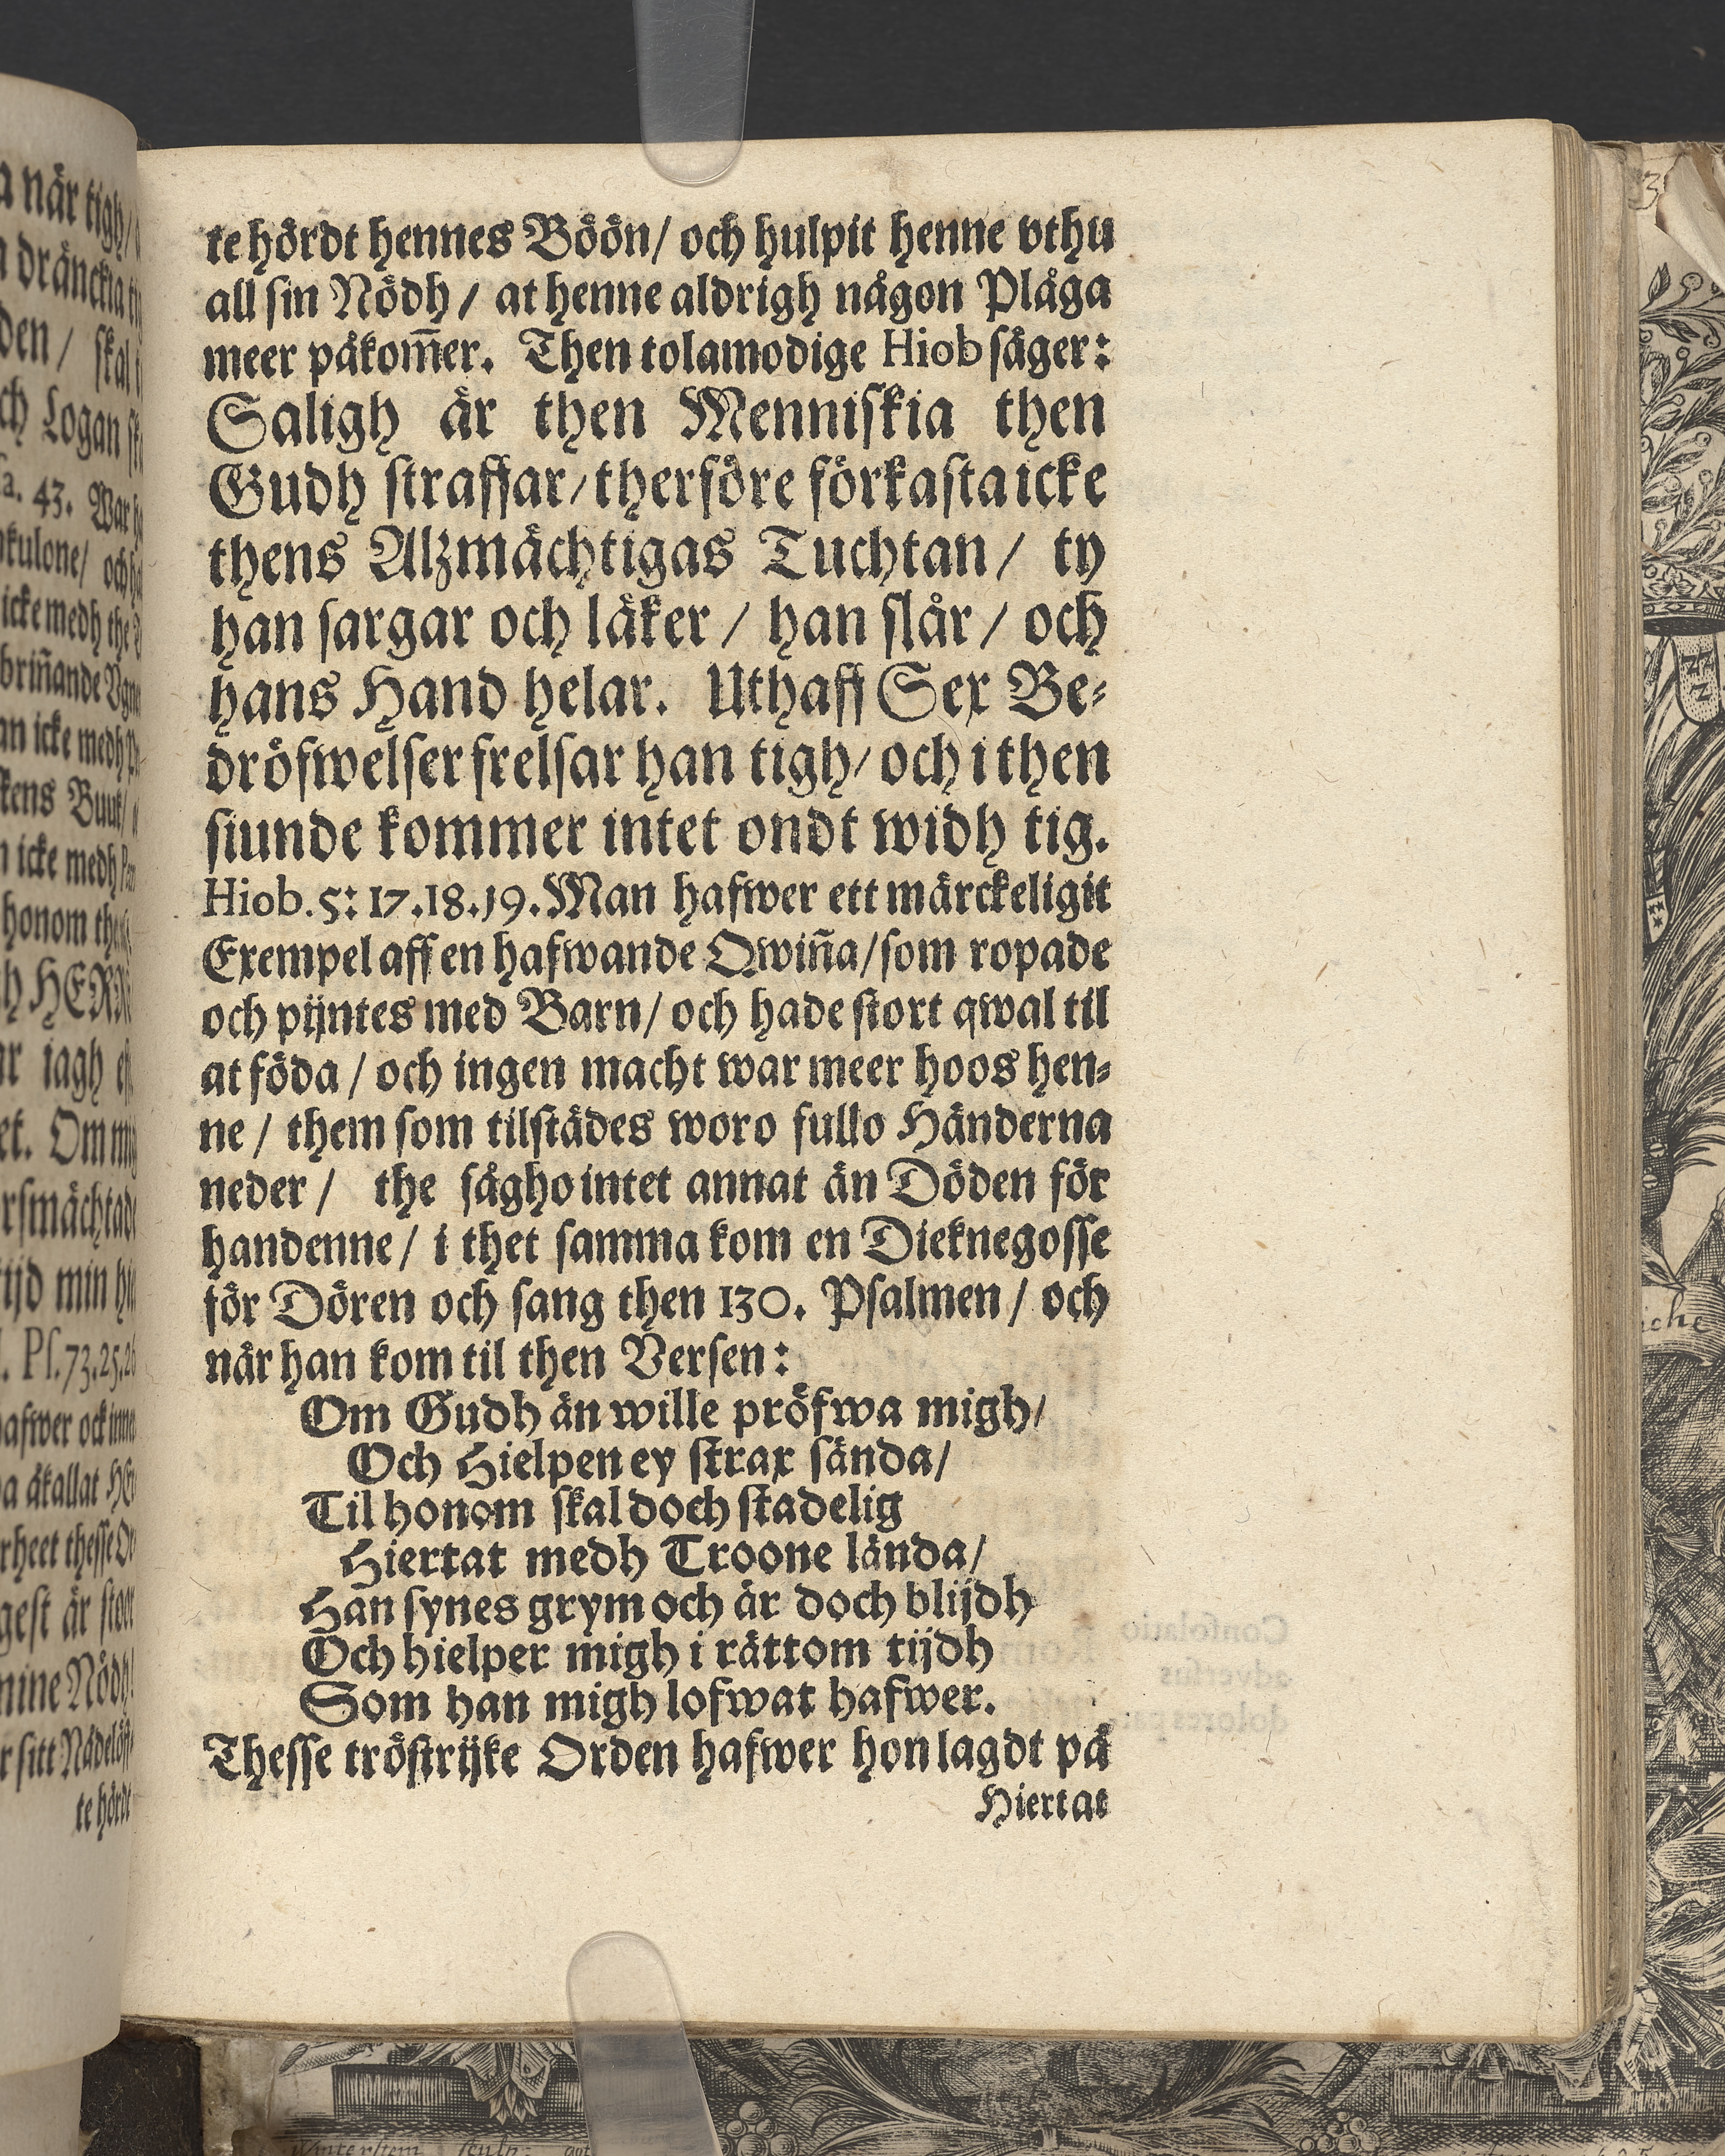 te hördt hennes Böön/ och hulpit henne vthu
all sin Nödh/ at henne aldrigh någon Plåga
meer påkom̃er. Then tolamodige Hiob säger:
Saligh är then Menniskia then
Gudh straffar/ therföre förkasta icke
thens Alzmächtigas Tuchtan/ ty
han sargar och läker/ han slår/ och
hans Hand helar. Uthaff Sex Be-
dröfwelser frelsar han tigh/ och i then
siunde kommer intet ondt widh tig.
Hiob. 5: 17.18.19. Man hafwer ett märckeligit
Exempel aff en hafwande Qwiña/ som ropade
och pijntes med Barn/ och hade stort qwal til
at föda/ och ingen macht war meer hoos hen-
ne/ them som tilstädes woro fullo Händerna
neder/ the sågho intet annat än Döden för
handenne/ i thet samma kom en Dieknegosse
för Dören och sang then 130. Psalmen/ och
når han kom til then Versen:
Om Gudh än wille pröfwa migh/
Och Hielpen ey strax sända/
Til honom skal doch stadelig
Hiertat medh Troone lända/
Han synes grym och är doch blijdh
Och hielper migh i rättom tijdh
Som han migh lofwat hafwer.
Thesse tröstrijke Orden hafwer hon lagdt på
Hiertat